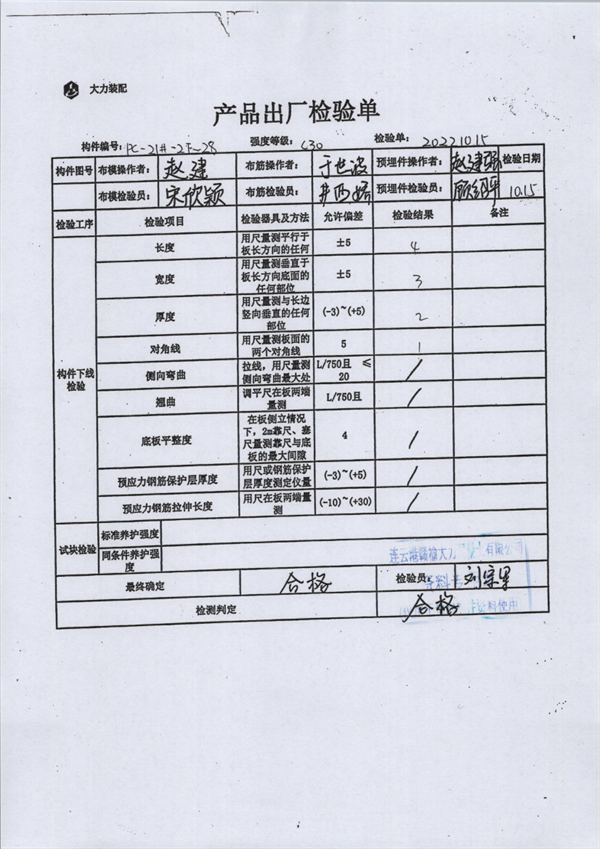 大力装配
产品出厂检验单
构件编号: PC-21#-2F-28 强度等级: C30 检验单: 20221015
构件图号 布模操作者: 赵建 布筋操作者: 于世波 预埋件操作者: 赵建强 检验日期
布模检验员: 宋欣颖 布筋检验员: 预埋件检验员: 10.15
检验工序 检验项目 检验器具及方法 允许偏差 检验结果 备注
构件下线检验
长度 用尺量测平行于板长方向的任何 ±5 4
宽度 用尺量测垂直于板长方向底面的任何部位 ±5 3
厚度 用尺量测与长边竖向垂直的任何部位 (-3)~(+5) 2
对角线 用尺量测板面的两个对角线 5 1
侧向弯曲 拉线,用尺量测侧向弯曲最大处 L/750且 ≤20 /
翘曲 调平尺在板两端量测 L/750且 /
底板平整度 在板侧立情况下,2m靠尺、塞尺量测靠尺与底板的最大间隙 4 /
预应力钢筋保护层厚度 用尺或钢筋保护层厚度测定仪量 (-3)~(+5) /
预应力钢筋拉伸长度 用尺在板两端量测 (-10)~(+30) /
试块检验 标准养护强度
同条件养护强度
连云港赣榆大力 有限公司
最终确定 合格 检验员: 刘宗里
检测判定 合格